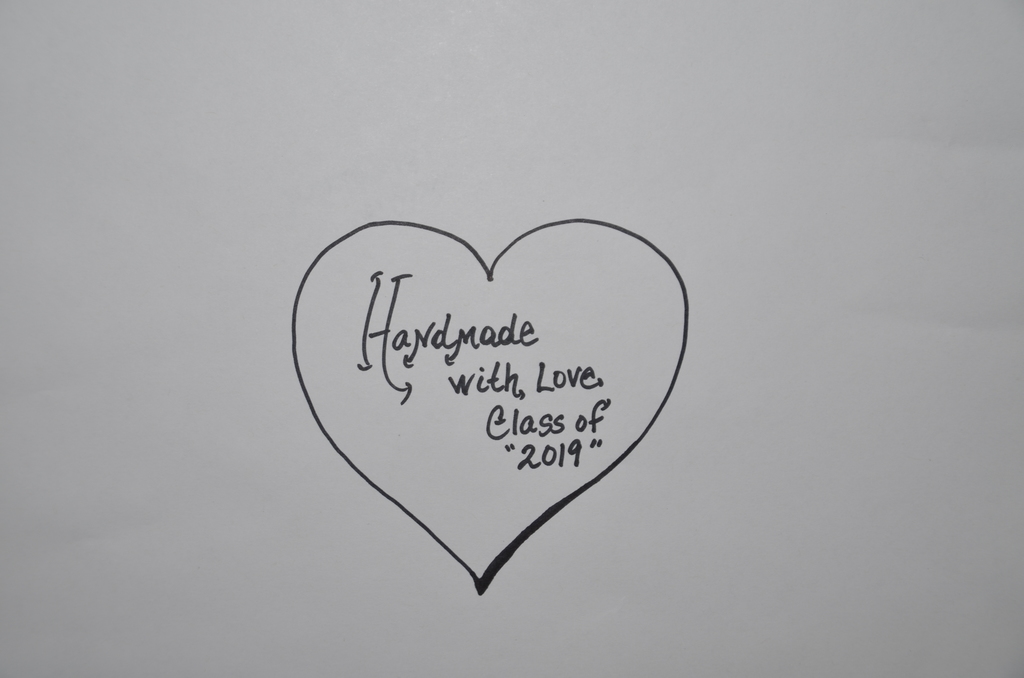 Handmade
with, Love.
Class of
"2019"